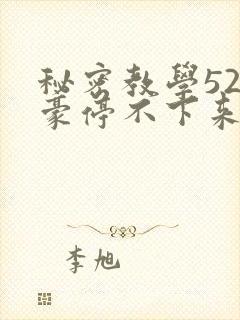 秘密教學52
豪停不下来
李旭